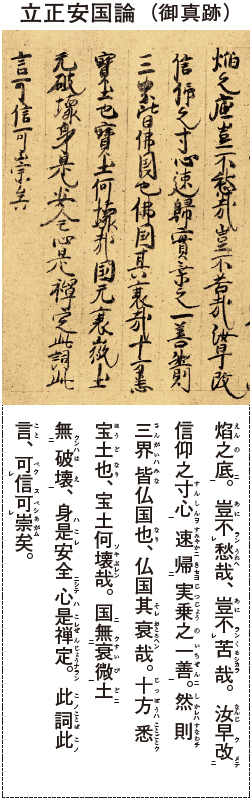 立正安国論（御真跡）
焔之底豈不愁哉豈不苦哉汝早改
信仰之寸心速歸實乗之一善然則
三界皆佛国也佛国其衰哉十方悉
寳土也寳土何壊哉国无衰微土
无破壊身是安全心是禅定此詞此
言可信可崇矣
焔之底。豈不愁哉、豈不苦哉。汝早改
信仰之寸心、速帰実乗之一善。然則
三界皆仏国也、仏国其衰哉。十方悉
宝土也、宝土何壊哉。国無衰微土
無破壊、身是安全、心是禅定。此詞此
言、可信可崇矣。